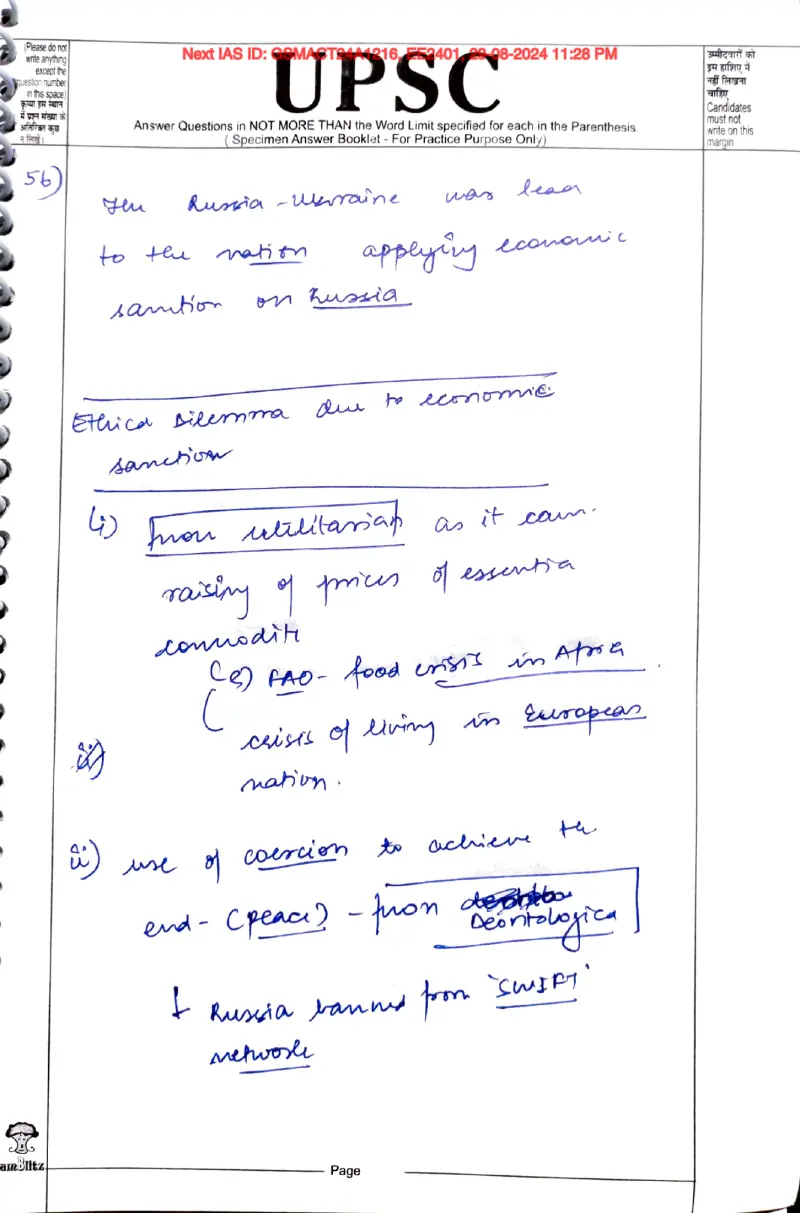 (Please do not
write anything
except the
question number
in this space)
कृपया इस स्थान
में प्रश्न संख्या के
अतिरिक्त कुछ
न लिखें।
Next IAS ID: GSMACT24A1216, EE2401, 29-08-2024 11:28 PM
UPSC
Answer Questions in NOT MORE THAN the Word Limit specified for each in the Parenthesis.
( Specimen Answer Booklet - For Practice Purpose Only)
उम्मीदवारों को
इस हाशिए में
नहीं लिखना
चाहिए
Candidates
must not
write on this
margin
5b)
The Russia-Ukraine was lead
to the nation applying economic
sanction on Russia
Ethical Dilemma due to economic
sanction
(i) from utilitarian as it
raising of prices of essentia
commodit
eg) FAO - food crisis in Africa
crisis of living in European
nation.
ii) use of coercion to achieve the
end - (peace) - from
Deontological
Russia banned from 'SWIFT'
network
Page